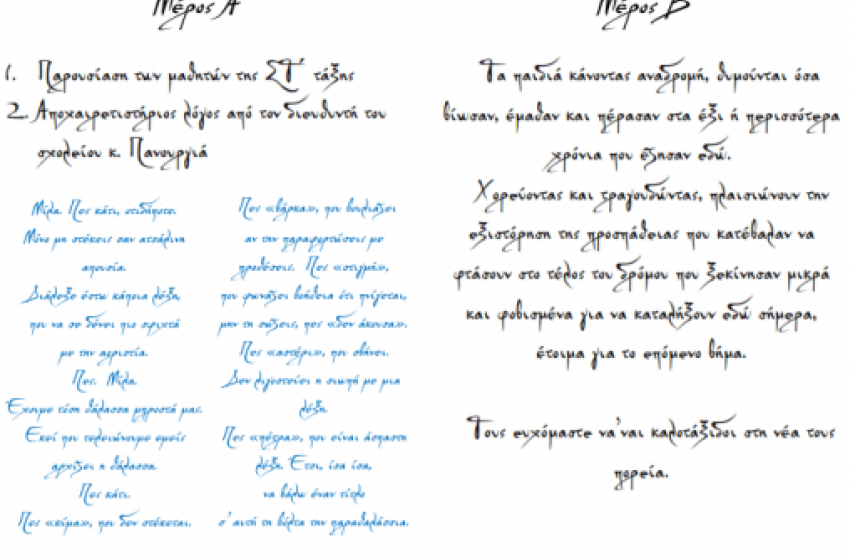 Μέρος Α
1. Παρουσίαση των μαθητών της ΣΤ΄ τάξης
2. Αποχαιρετιστήριος λόγος από τον διευθυντή του
σχολείου κ. Πανουργιά
Μίλα. Πες κάτι, οτιδήποτε.
Μόνο μη στέκεις σαν ατσάλινη
απουσία.
Διάλεξε έστω κάποια λέξη,
που να σε δένει πιο σφιχτά
με την αοριστία.
Πες. Μίλα.
Έχουμε τόση θάλασσα μπροστά μας.
Εκεί που τελειώνουμε εμείς
αρχίζει η θάλασσα.
Πες κάτι.
Πες «κύμα», που δεν στέκεται.
Πες «βάρκα», που βουλιάζει
αν την παραφορτώσεις με
προθέσεις. Πες «στιγμή»,
που φωνάζει βοήθεια ότι πνίγεται,
μην τη σώζεις, πες «δεν άκουσα».
Πες «αστέρι», που σβήνει.
Δεν λιγοστεύει η σιωπή με μια
λέξη.
Πες «πέτρα», που είναι άσπαστη
λέξη. Έτσι, ίσα ίσα,
να βάλω έναν τίτλο
σ' αυτή τη βόλτα την παραθαλάσσια.
Μέρος Β
Τα παιδιά κάνοντας αναδρομή, θυμούνται όσα
βίωσαν, έμαθαν και πέρασαν στα έξι ή περισσότερα
χρόνια που έζησαν εδώ.
Χορεύοντας και τραγουδώντας, πλαισιώνουν την
εξιστόρηση της προσπάθειας που κατέβαλαν να
φτάσουν στο τέλος του δρόμου που ξεκίνησαν μικρά
και φοβισμένα για να καταλήξουν εδώ σήμερα,
έτοιμα για το επόμενο βήμα.
Τους ευχόμαστε να'ναι καλοτάξιδοι στη νέα τους
πορεία.